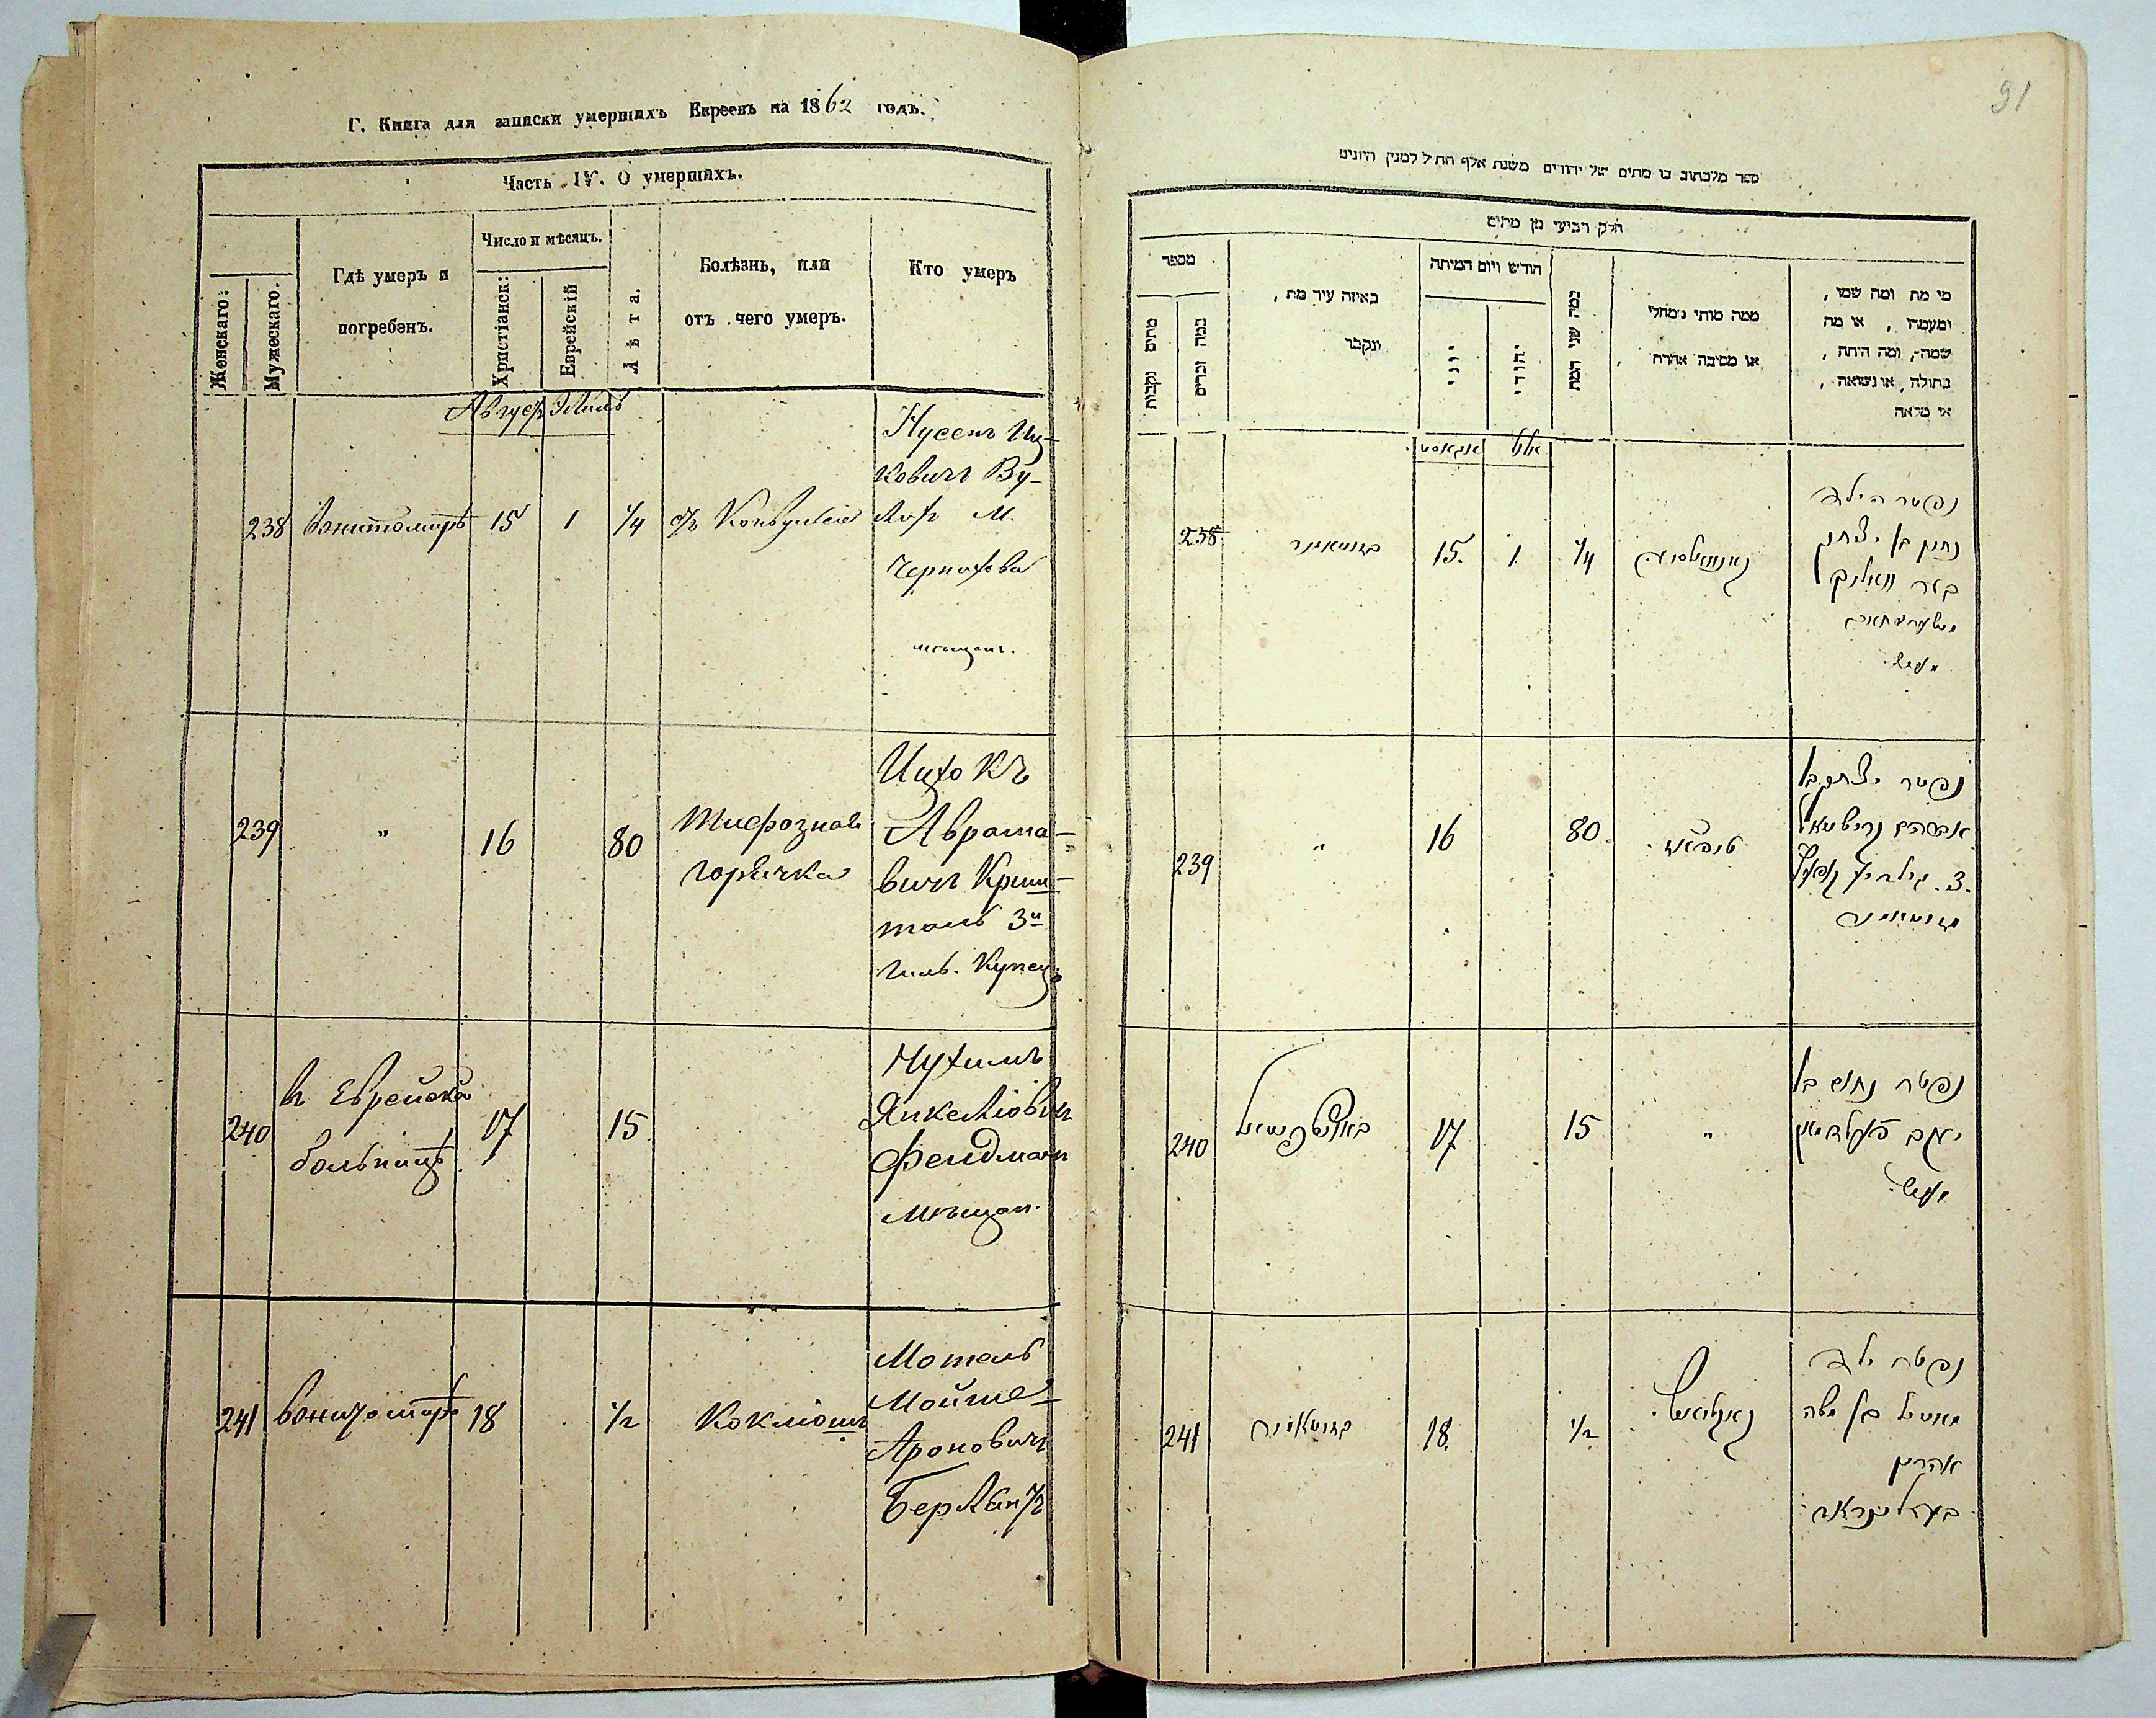 Г. Книга для записки умершихъ Евреевъ на 1862 годъ.
Часть IV. О умершихъ.
Женскаго:
Мужескаго.
Гдѣ умеръ и
погребенъ.
Число и мѣсяцъ.
Христіанск:
Еврейскій
Лѣта.
Болѣзнь, или
отъ чего умеръ.
Кто умеръ
Август Элюль
238 вжитомирѣ 15 1 1/4
Нусенъ Иц-
ковичъ Ву-
М.
Черняхова
мещан.
239 " 16 80
Тифозная
горячка
Ицхокъ
Аврамо-
вичъ Криш-
таль 3й
гиль. Купец
240
в Еврейской
больницѣ
17 15
Нухимъ
Янкелiович
Фельдман
мѣщан.
241 вжитомирѣ 18 1/2 Коклюшъ
Мотель
Мойше-
Ароновичъ
91
ספר מלכתוב בו מתים של יהודים משנת אלף תת״ל למנין היונים
חלק רביעי מן מתים
מספר
מתים נקבות
במה זכרים
באיזה עיר מת,
ונקבר
חודש ויום המיתה
יוני
יהודי
כמה שני המת
ממה מותי ממחלי
או מסיבה אחרת
מי מת ומה שמו,
ומעמדו, או מה
שמה, ומה היתה,
בתולה, או נשואה,
או מלאה
אוגוסט אלול
238 בזיטאמיר 15. 1 1/4
נפטר הילד
נתן בן יצחק
239 " 16 80
נפטר יצחק בן
אברהם קרישטאל
זיטאמיר
240 17 15 "
נפטר נחום בן
יעקב פעלדמאן
241 בזיטאמיר 18. 1/2
נפטר ילד
מאטיל בן משה
אהרון